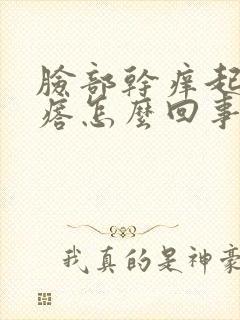 臉部幹癢起
痞怎麼回事
我真的是神豪